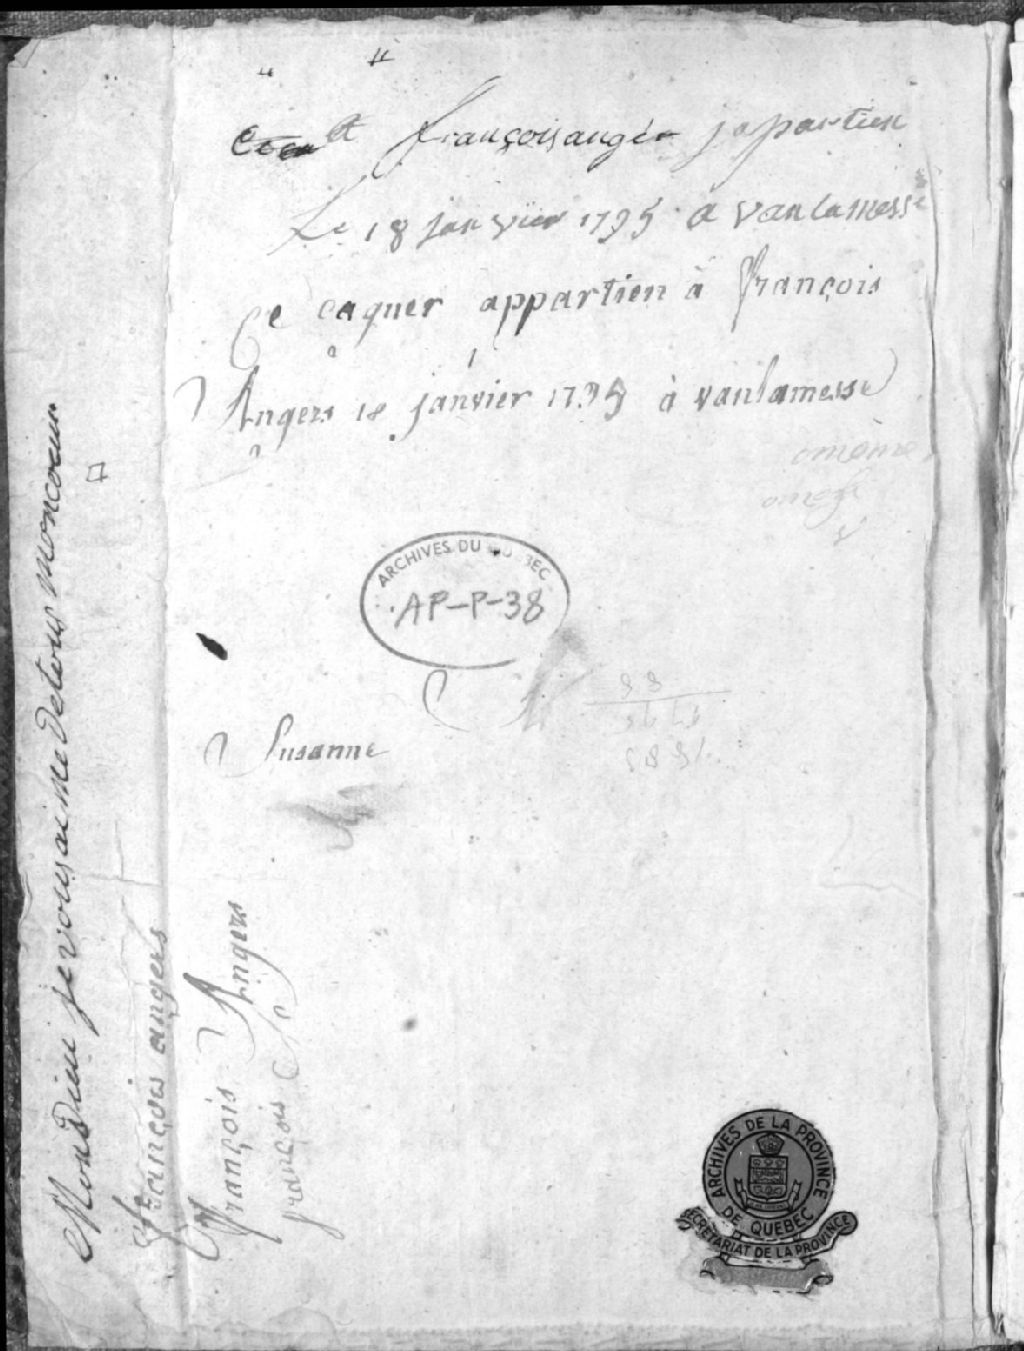 françois angér japartien
Le 18 janvier 1795 a vanlamesse
Ce caquer appartien à françois
Angers 18 janvier 1795 à vanlamesse
omème
ARCHIVES DU QUEBEC
AP-P-38
Susanne
Mondieu je vous aime de tous moncoeur
françois angers
François Angers
françois
ARCHIVES DE LA PROVINCE
DE QUEBEC
SECRETARIAT DE LA PROVINCE